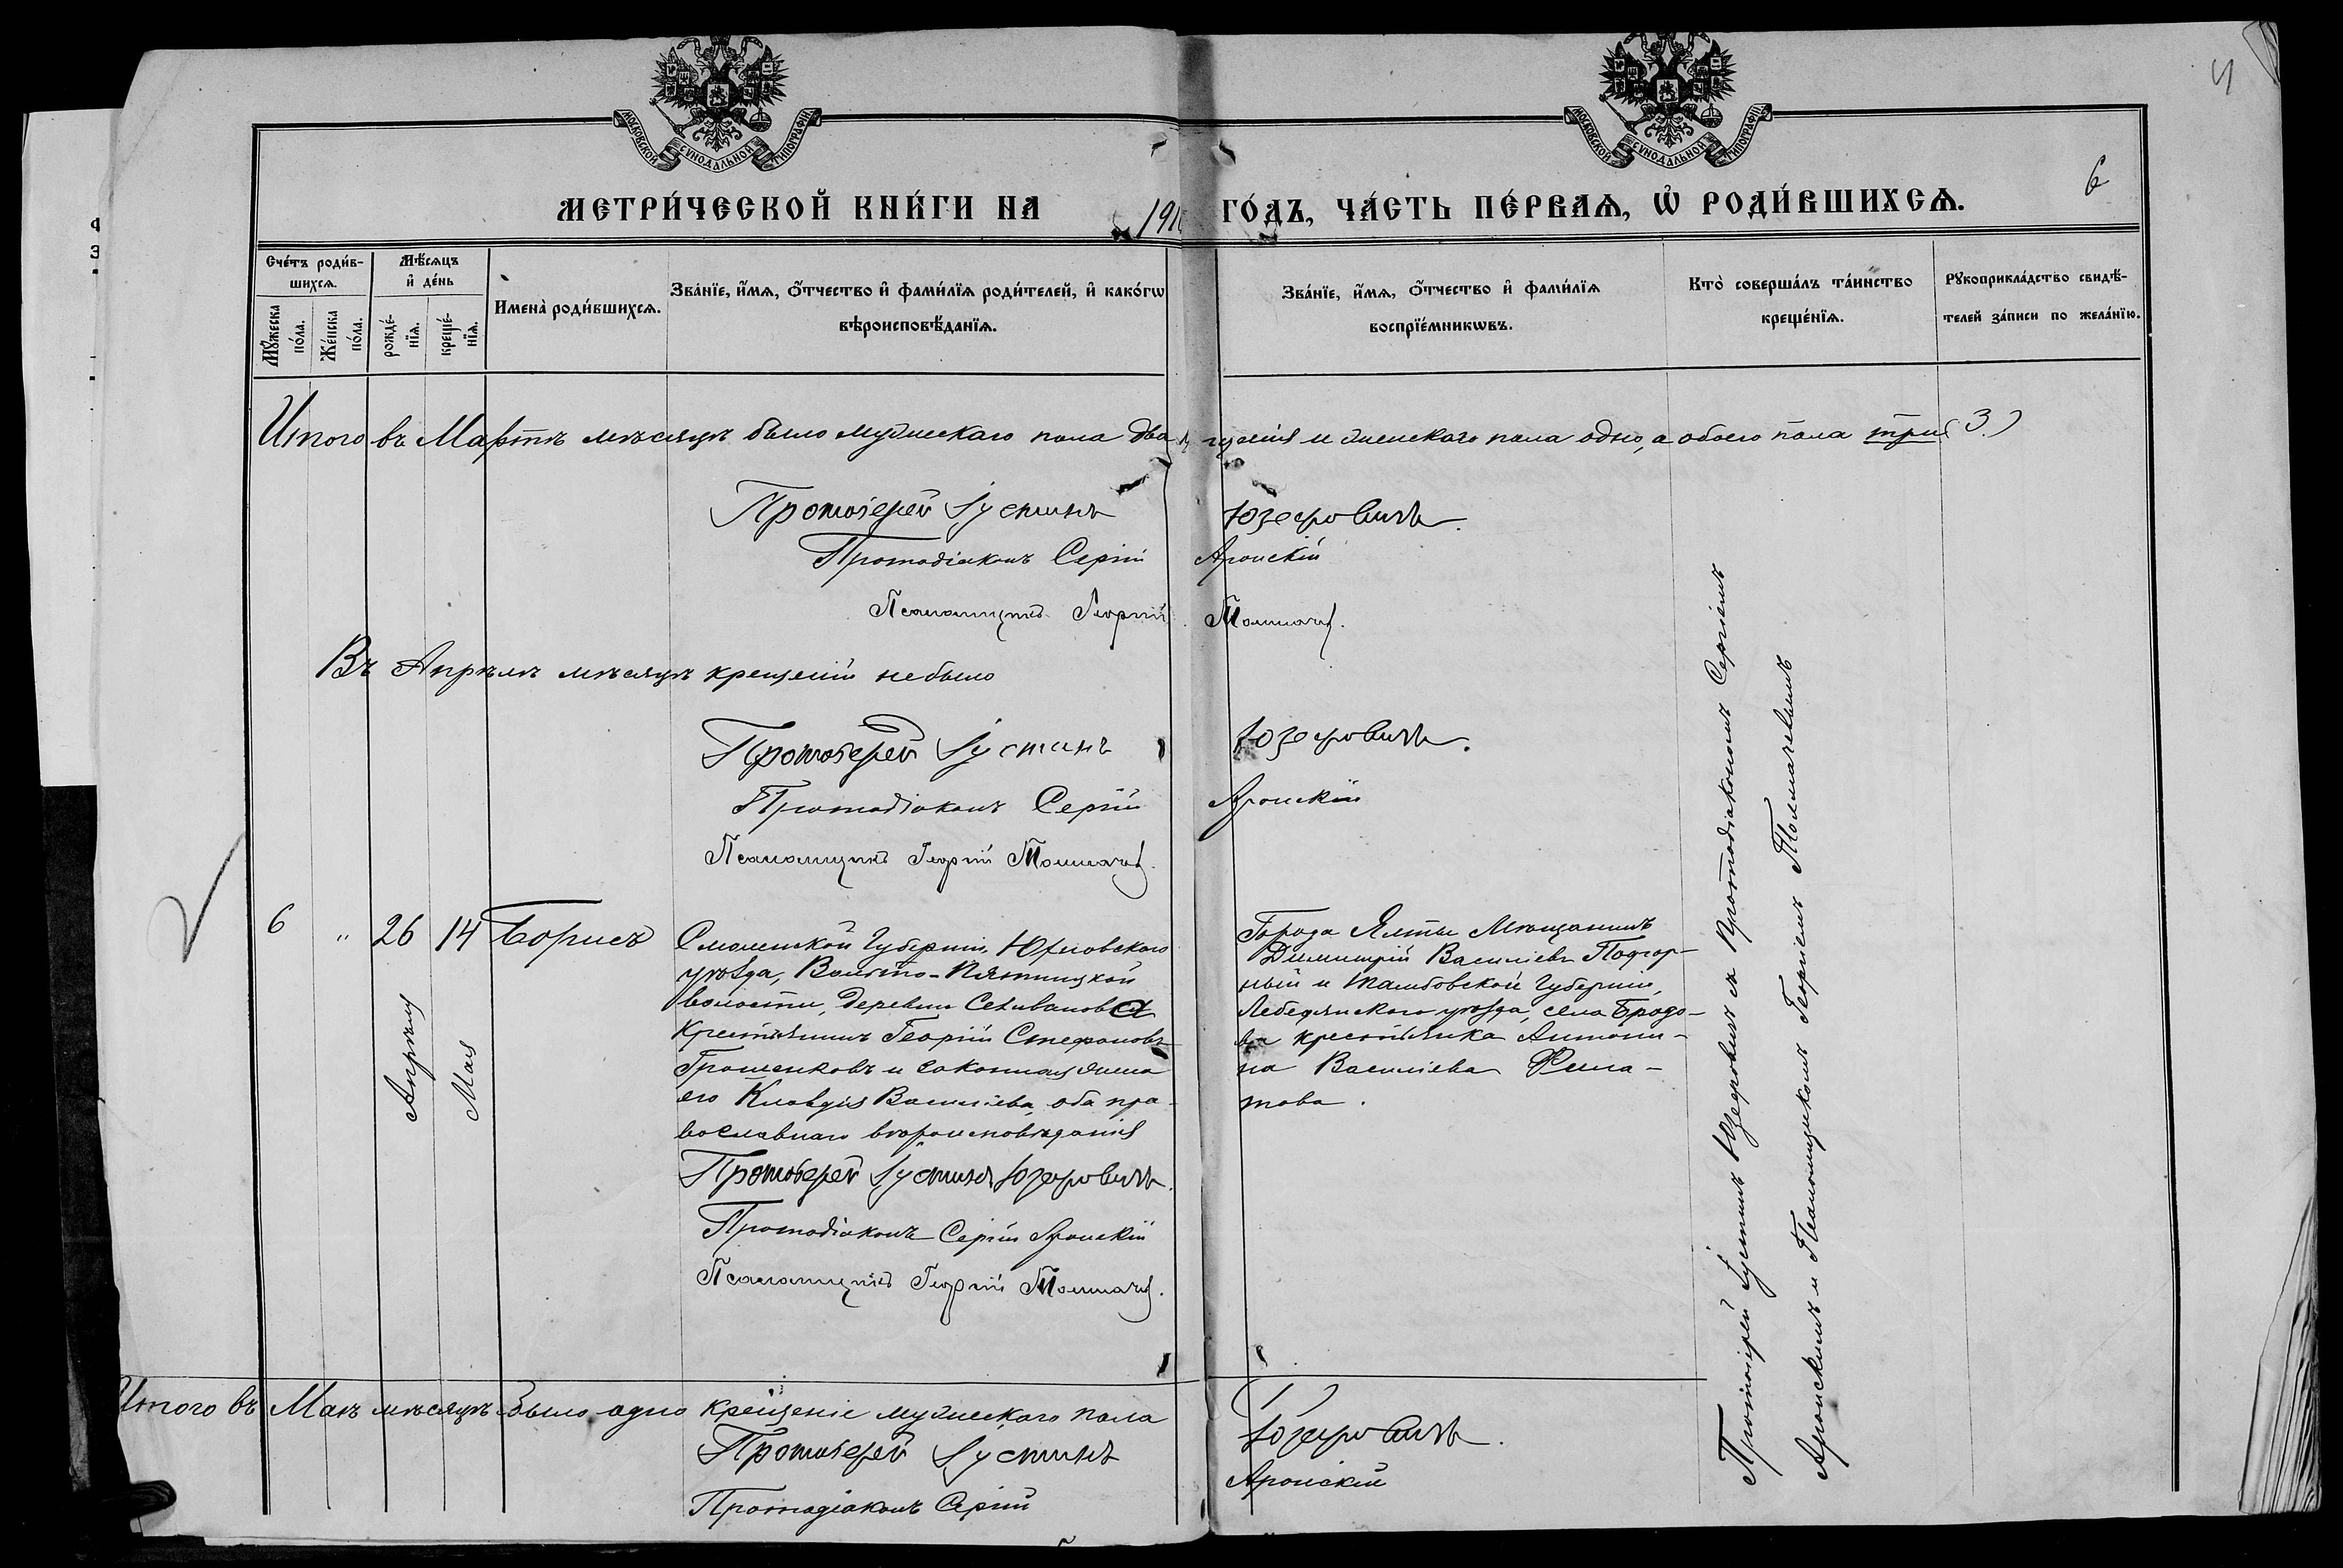 МОСКОВСКОЙ СУНОДАЛЬНОЙ ТИПОГРАФІИ
МОСКОВСКОЙ СУНОДАЛЬНОЙ ТИПОГРАФІИ
6
МЕТРИ́ЧЕСКОЙ КНИ́ГИ НА 191 ГО́ДЪ, ЧА́СТЬ ПЕ́РВАѦ, Ѡ҆ РОДИ́ВШИХСѦ.
Сче́тъ роди́в-
шихсѧ.
Мꙋ́жеска по́ла.
Же́нска по́ла.
Мѣ́сѧцъ
и҆ де́нь
рожде́-
нїѧ.
креще́-
нїѧ.
Имена̀ роди́вшихсѧ.
Зва́нїе, и҆́мѧ, ѻ҆́тчество и҆ фами́лїѧ роди́телей, и҆ како́гѡ
вѣроисповѣ́данїѧ.
Зва́нїе, и҆́мѧ, ѻ҆́тчество и҆ фами́лїѧ
воспрїе́мникѡвъ.
Кто̀ соверша́лъ та́инство
креще́нїѧ.
Рꙋкоприкла́дство свидѣ́-
телей за́писи по жела́нїю.
Итого въ Мартѣ мѣсяцѣ было мужескаго пола два и женскаго пола одно, а обоего пола три (3.)
Протоіерей Іустинъ Юзефовичъ.
Протодіаконъ Сергій Аронскій
Псаломщикъ Георгій Толмачев.
Въ Апрѣлѣ мѣсяцѣ крещеній не было
Протоіерей Іустинъ Юзефовичъ.
Протодіаконъ Сергій Аронскій
Псаломщикъ Георгій Толмачев.
6 " 26 14 Борисъ
Апрѣля
Мая
Смоленской Губерніи, Юхновскаго
уѣзда, Вольсто-Пятницкой
волости, деревни Селиванова
Крестьянинъ Георгій Стефановъ
Грошенковъ и законная жена
его Клавдія Васильева, оба пра-
вославнаго вѣроисповѣданія
Города Ялты Мѣщанинъ
Димитрій Васильевъ Подгор-
ный и Тамбовской Губерніи,
Лебедянского уѣзда, села Бродо-
ва крестьянка Антони-
на Васильева Фила-
това.
Протоіерей Іустинъ Юзефовичъ.
Протодіаконъ Сергій Аронскій
Псаломщикъ Георгій Толмачев.
Протоіерей Іустинъ Юзефовичъ съ Протодіакономъ Сергіемъ
Аронскимъ и Псаломщикомъ Георгіемъ Толмачевымъ
Итого въ Маѣ мѣсяцѣ было одно крещеніе мужескаго пола (1)
Протоіерей Іустинъ Юзефовичъ.
Протодіаконъ Сергій Аронскій